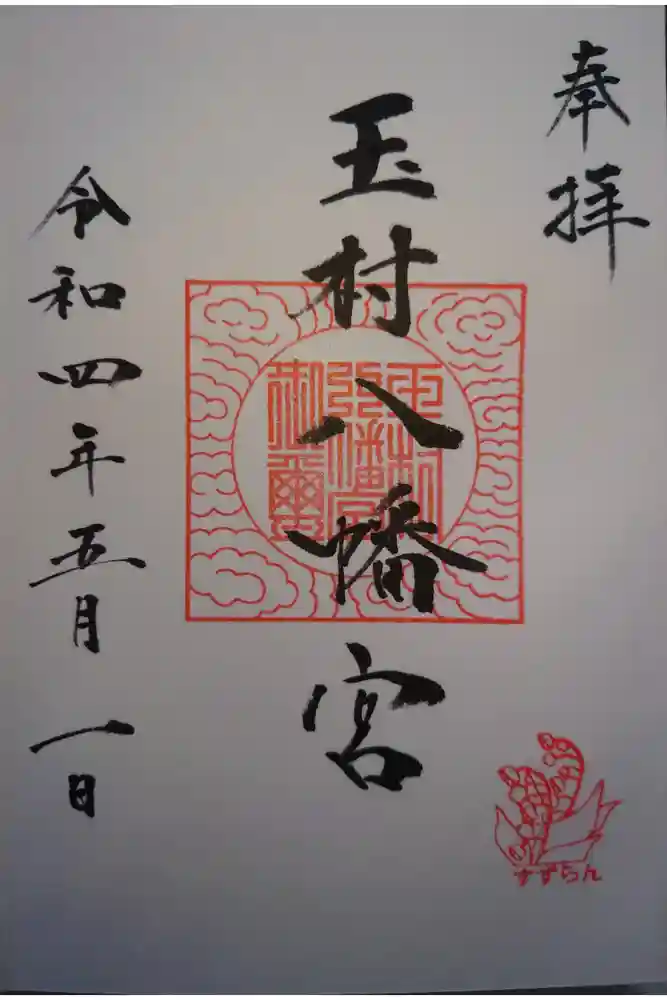 奉拝
玉村八幡宮
玉村八幡宮御璽
令和四年五月一日
すずらん